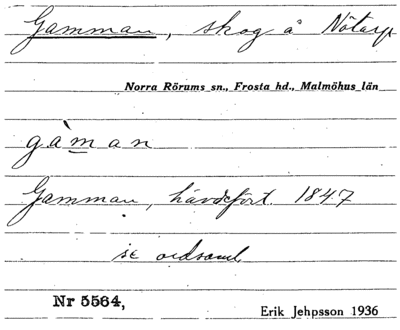 Gamman, skog å Nötarp
Norra Rörums sn., Frosta hd., Malmöhus län
gàman
Gamman, hävdefört 1847
se ordsaml.
Nr 5564,
Erik Jehpsson 1936